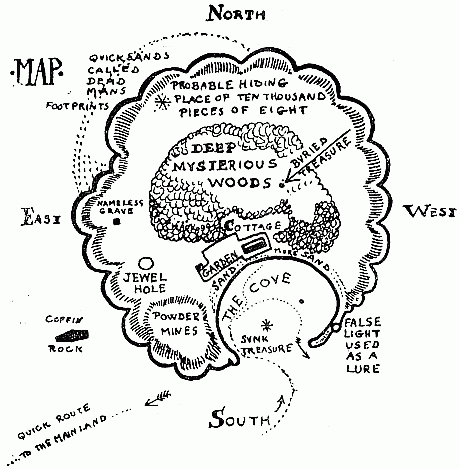 NORTH
·MAP·
QUICKSANDS
CALLED
DEAD
MANS
FOOTPRINTS
PROBABLE HIDING
PLACE OF TEN THOUSAND
PIECES OF EIGHT
DEEP
MYSTERIOUS
WOODS
BURIED
TREASURE
EAST
WEST
NAMELESS
GRAVE
COTTAGE
GARDEN
SAND
MORE SAND
THE COVE
JEWEL
HOLE
POWDER
MINES
SUNK
TREASURE
COFFIN
ROCK
FALSE
LIGHT
USED
AS A
LURE
SOUTH
QUICK ROUTE
TO THE MAINLAND